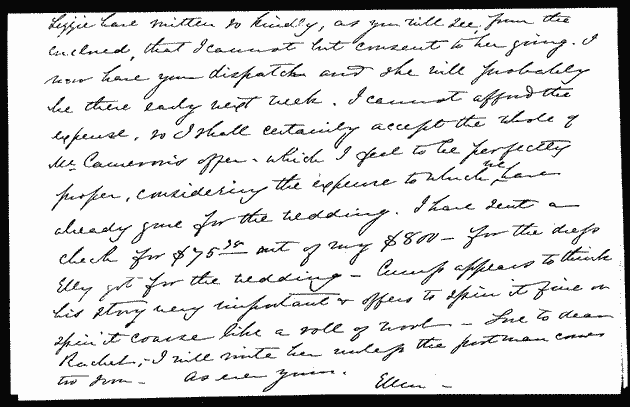 Lizzie have written so kindly, as you will see, from the
enclosed, that I cannot but consent to her going. I
now have your dispatch and she will probably
be there early next week. I cannot afford the
expense, so I shall certainly accept the whole of
Mr. Cameron's offer - which I feel to be perfectly
proper, considering the expense to which we have
already gone for the wedding. I have sent a
check for $75 out of my $800 - for the dress
Elly got for the wedding - Cump appears to think
his story very important & offers to spin it fine or
spin it coarse like a roll of wool - Love to dear
Rachel, - I will write her unless the postman comes
too soon - As ever yours.
Ellen -